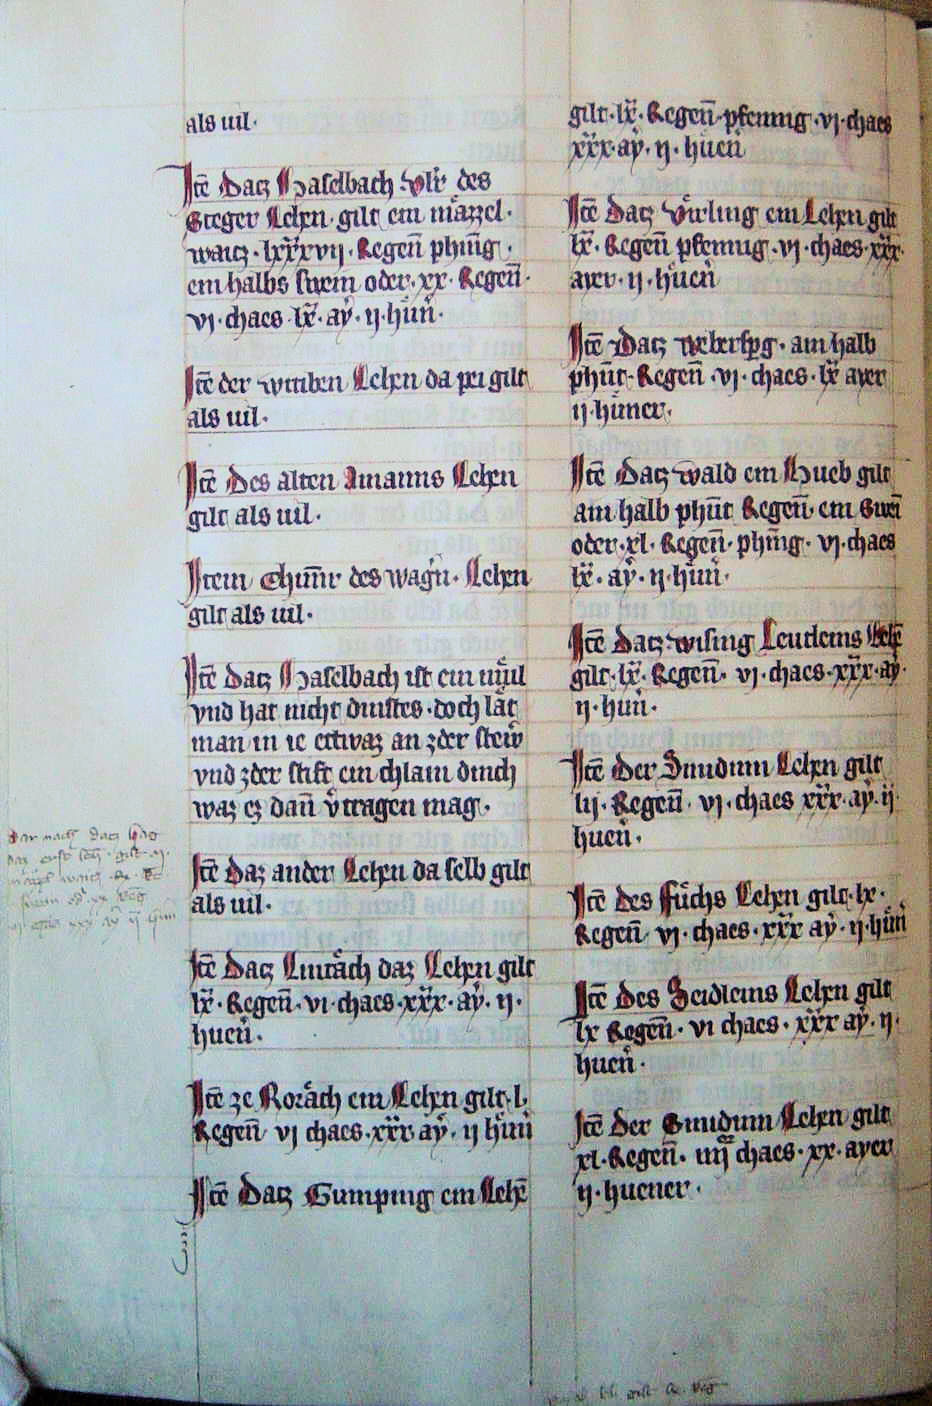 als uil·
Itē Datz Haselbach Vlr̄ des
Steger Lehen· gilt ein mäzzel·
waitz· lxxxvij· Regen̄ phīng·
ein halbs swein oder· xx· Regen̄·
vj· chaes· lx· aẏ· ij· hün̄·
Itē der witiben Lehen da pei gilt
als uil·
Itē Des alten Amanns Lehen
gilt als uil·
Item des wagn̄· Lehen
gilt als uil·
Itē datz Haselbach ist ein mül
vnd hat nicht dinstes· doch lät
man in ie ettwaz an zder stew̄
vnd zder stift ein chlain dinch
waz ez dan̄ v̄tragen mag·
Itē daz ander Lehen da selb gilt
als uil·
Itē Datz Lintäch daz Lehen gilt
lx· Regen̄· vi· chaes· xxx· aẏ· ij·
huen̄·
Itē ze Roräch ein Lehen gilt· l·
Regen̄ vj chaes· xxx· aẏ· ij hün̄
Itē Datz Gumping ein Lehē
gilt· lx· Regen̄· pfenning· vj· chaes
xxx· aẏ· ij· huen̄
Itē Datz ein Lehen gilt
lx· Regen̄ pfennig· vj· chaes· xxx·
ayer· ij· hüen̄
Itē Datz am halb
phūt· Regen̄· vj· chaes· lx ayer
ij· hüner·
Itē Datz wald ein Hueb gilt
am halb phūt Regen̄· ein Swei
oder· xl· Regen̄· phīng· vj· chaes
lx· aẏ· ij· hün̄·
Itē Datz wising Leutleins Lehē
gilt· lx· Regen̄· vj· chaes· xxx· aẏ·
ij· hun̄·
Itē Der Smidinn Lehen gilt
lij· Regen̄· vj· chaes xxx· aẏ· ij·
huen̄·
Itē des Füchs Lehen gilt· lx·
Regen̄ vj· chaes· xxx aẏ· ij· hün̄
Itē des Zeidleins Lehen gilt
lx Regen̄· vi chaes· xxx aẏ· ij·
huen̄·
Itē Der Smidinn Lehen gilt
xl· Regen̄· iiij chaes· xx· ayer
ij· huener·